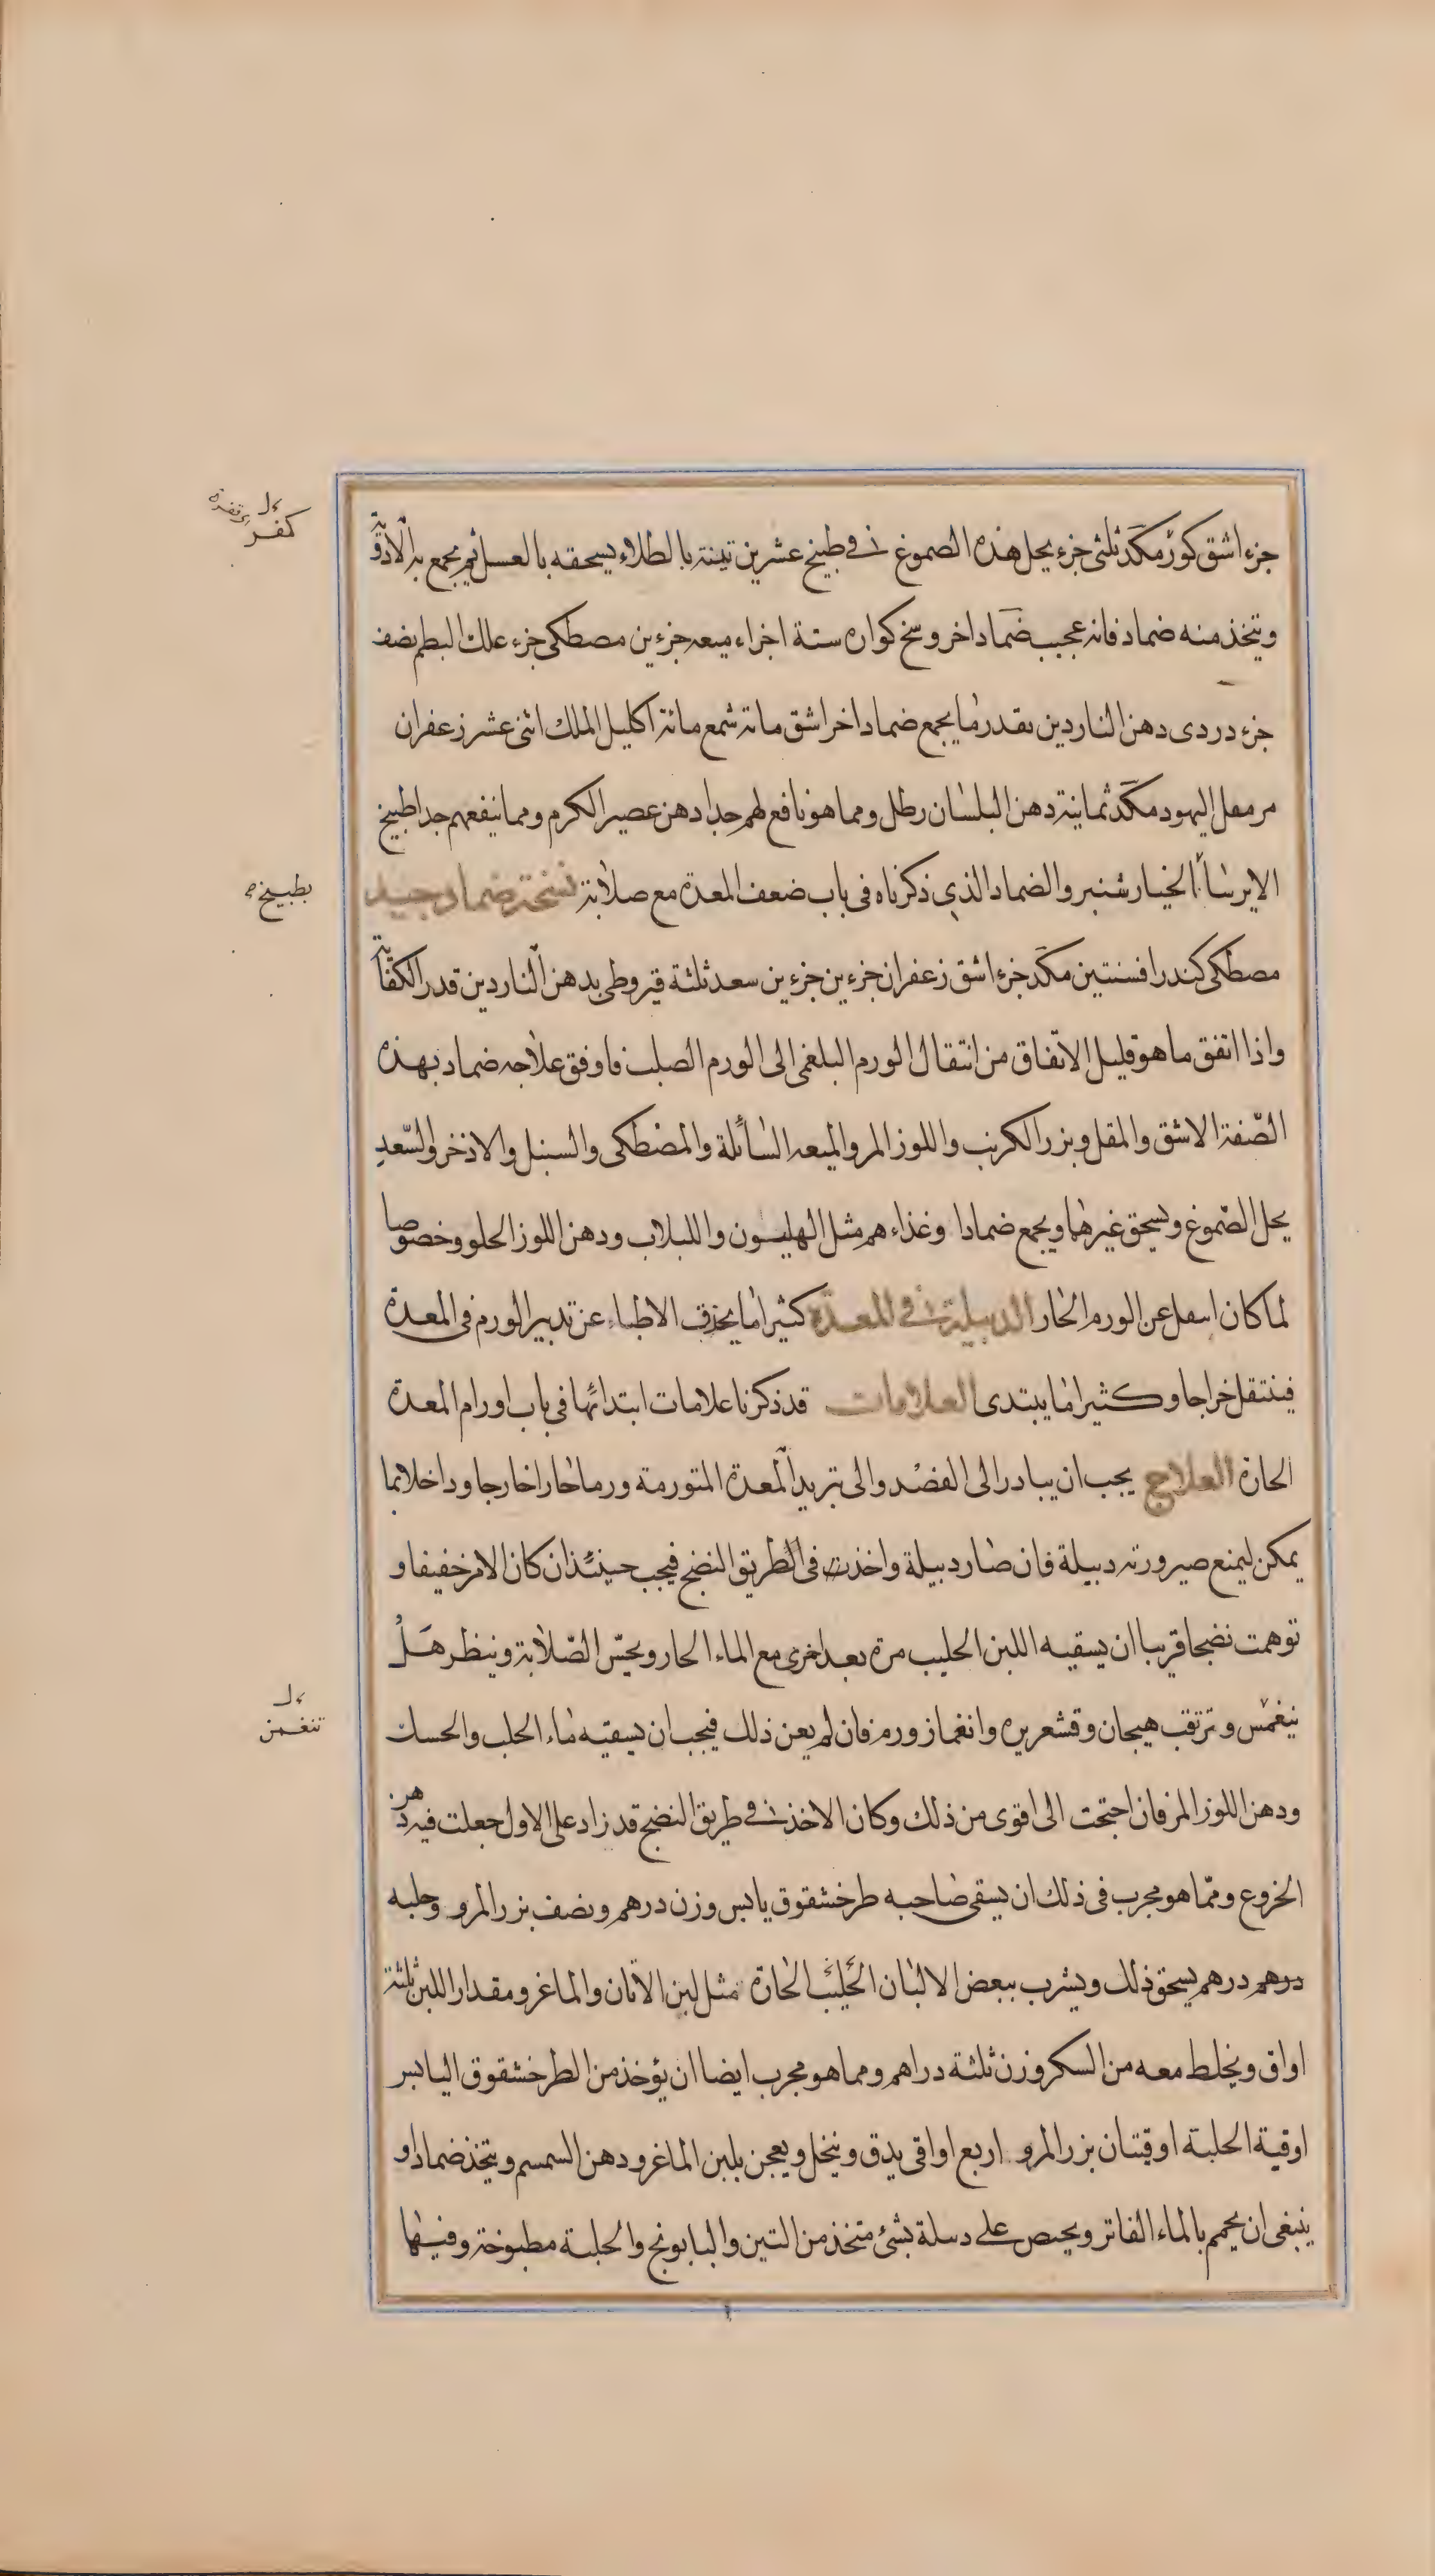 جزء اشق كور مكد ثلثى جزء يحل هذه الصموغ فى طبيخ عشرين تينة بالطلاء يسحقه بالعسل ثم يجمع به الادوية
ويتخذ منه ضماد فانه عجيب ضمادا خر وسخ كواره ستة اجزاء ميعه جزءين مصطكى جزء علك البطم نصف
جزء دردى دهن الناردين بقدر ما يجمع ضماد اخر اشق مائة شمع مائة اكليل الملك اثنى عشر زعفران
مر مقل اليهود مكد ثمانية دهن البلسان رطل ومما هو نافع لهم جدا دهن عصير الكرم ومما ينفعهم جدا طبيخ
الايرسا الخيار شنبر والضماد الذي ذكرناه فى باب ضعف المعدة مع صلابة نسخة ضماد جيد
مصطكى كندر افسنتين مكد جزء اشق زعفران جزءين جزءين سعد ثلثة قيروطى بدهن الناردين قدر الكفاية
واذا اتفق ما هو قليل الاتفاق من انتقال الورم البلغمى الى الورم الصلب فاوفق علاجه ضماد بهذه
الصفة الاشق والمقل وبزر الكرنب واللوز المر والميعه السائلة والمصطكى والسنبل والاذخر والسعد
يحل الصموغ ويسحق غيرها ويجمع ضمادا وغذاءهم مثل الهليون واللبلاب ودهن اللوز الحلو وخصوصا
لما كان اسفل عن الورم الحار الدبيلة فى المعدة كثيرا ما يحذق الاطباء عن تدبير الورم فى المعدة
فينتقل خراجا وكثيرا ما يبتدى العلامات قد ذكرنا علامات ابتدائها فى باب اورام المعدة
الحارة العلاج يجب ان يبادر الى الفصد والى تبريد المعدة المتورمة ورما حارا خارجا وداخلا بما
يمكن ليمنع صيرورته دبيلة فان صار دبيلة واخذت فى الطريق النضج فيجب حينئذ ان كان الامر خفيفا و
توهمت نضجا قريبا ان يسقيه اللبن الحليب مرة بعد اخرى مع الماء الحار ويجس الصلابة وينظر هل
ينغمس وترتقب هيجان وقشعريره وانغماز ورم فان لم يعن ذلك فيجب ان يسقيه ماء الحلب والحسك
ودهن اللوز المر فان احتجت الى اقوى من ذلك وكان الاخذ فى طريق النضج قد زاد على الاول جعلت فيه دهن
الخروع ومما هو مجرب فى ذلك ان يسقى صاحبه طرخشقوق يابس وزن درهم ونصف بزر المرو وحلبه
درهم درهم يسحق ذلك ويشرب ببعض الالبان الحليب الحارة مثل لبن الاتان والماعز ومقدار اللبن ثلثة
اواق ويخلط معه من السكر وزن ثلثة دراهم ومما هو مجرب ايضا ان يؤخذ من الطرخشقوق اليابس
اوقية الحلبة اوقيتان بزر المرو اربع اواقى يدق وينخل ويعجن بلبن الماعز ودهن السمسم ويتخذ ضماد او
ينبغى ان يحمم بالماء الفاتر ويحص على دسلة بشئ متخذ من التين والبابونج والحلبة مطبوخة وفيها
كفر
بطبيخ
تنغمز